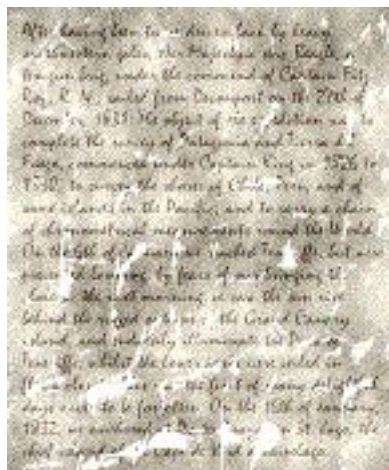 After having been twice driven back by heavy
southwestern gales, Her Majesty's ship Beagle, a
ten-gun brig, under the command of Captain Fitz
Roy, R. N., sailed from Devonport on the 27th of
December, 1831. The object of the expedition was to
complete the survey of Patagonia and Tierra del
Fuego, commenced under Captain King in 1826 to
1830, to survey the shores of Chile, Peru, and of
some islands in the Pacific, and to carry a chain
of chronometrical measurements round the World.
On the 6th of January we reached Teneriffe, but were
prevented landing, by fears of our bringing the
the next morning we saw the sun rise
behind the rugged outline of the Grand Canary
island, and suddenly illuminate the Peak of
Teneriffe, whilst the lower parts were veiled in
the first of many delightful
days never to be forgotten. On the 16th of January,
1832, we anchored at Porto Praya, in St. Jago, the
chief island of the Cape de Verd archipelago.